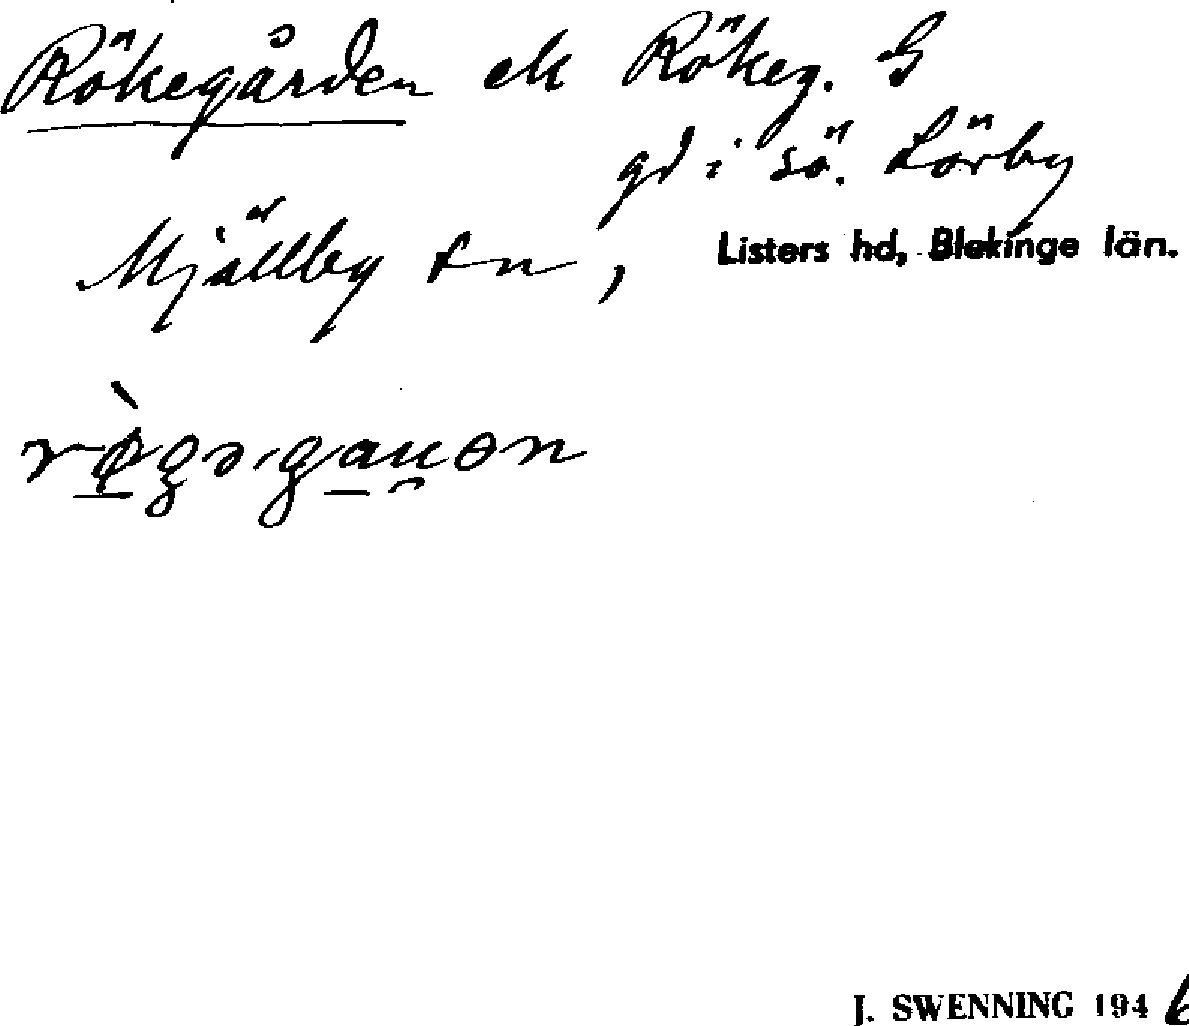 Rökegården el. Rökeg. G
gd i Sö. Lörby
Mjällby sn, Listers hd, Blekinge län.
rø̀gə-gau̯ən
J. SWENNING 1946